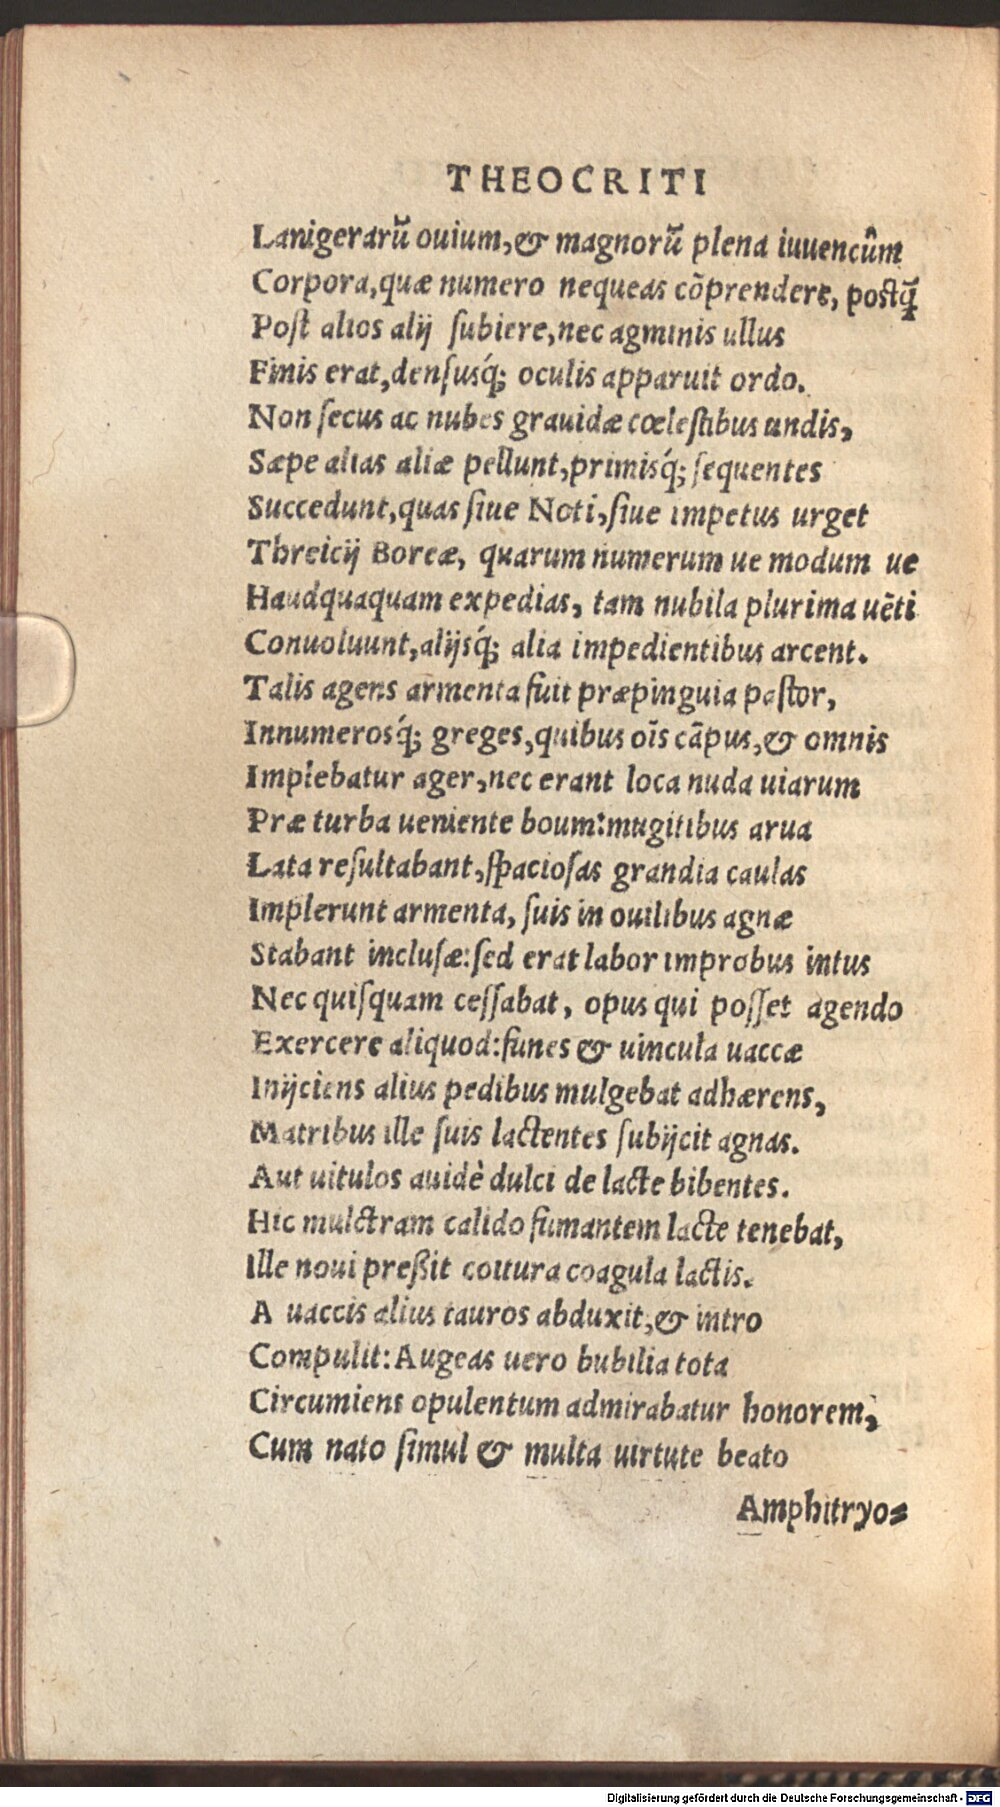 THEOCRITI
Lanigerarũ ouium, & magnorũ plena iuuencûm
Corpora, quæ numero nequeas cõprendere, postq̃
Post alios alij subiere, nec agminis ullus
Finis erat, densusq́; oculis apparuit ordo.
Non secus ac nubes grauidæ cœlestibus undis,
Sæpe alias aliæ pellunt, primisq́; sequentes
Succedunt, quas siue Noti, siue impetus urget
Threicij Boreæ, quarum numerum ue modum ue
Haudquaquam expedias, tam nubila plurima uẽti
Conuoluunt, alijsq́; alia impedientibus arcent.
Talis agens armenta fuit præpinguia pastor,
Innumerosq́; greges, quibus oĩs cãpus, & omnis
Implebatur ager, nec erant loca nuda uiarum
Præ turba ueniente boum: mugitibus arua
Lata resultabant, spaciosas grandia caulas
Implerunt armenta, suis in ouilibus agnæ
Stabant inclusæ: sed erat labor improbus intus
Nec quisquam cessabat, opus qui posset agendo
Exercere aliquod: funes & uincula uaccæ
Inijciens alius pedibus mulgebat adhærens,
Matribus ille suis lactentes subijcit agnas.
Aut uitulos auidè dulci de lacte bibentes.
Hic mulctram calido fumantem lacte tenebat,
Ille noui preßit coitura coagula lactis.
A uaccis alius tauros abduxit, & intro
Compulit: Augeas uero bubilia tota
Circumiens opulentum admirabatur honorem,
Cum nato simul & multa uirtute beato
Amphitryo=
Digitalisierung gefördert durch die Deutsche Forschungsgemeinschaft - DFG